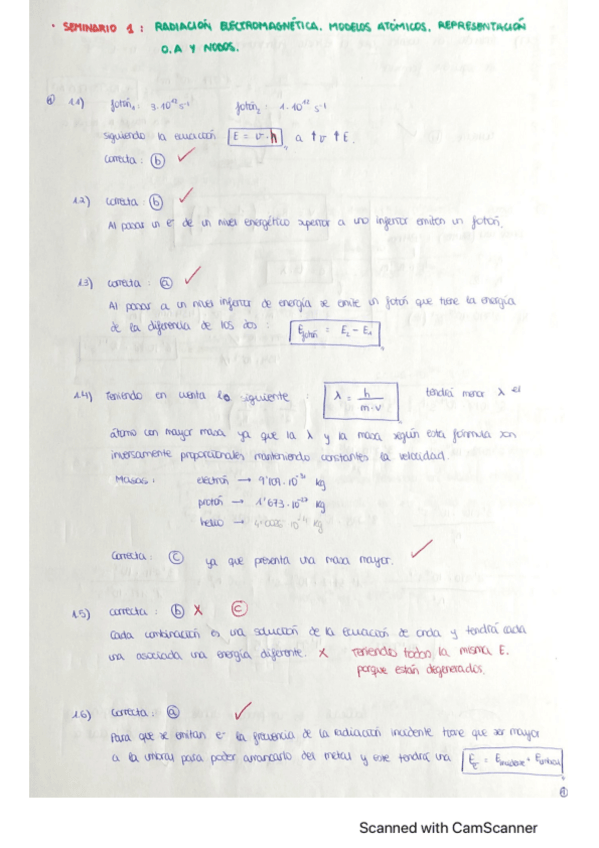 · SEMINARIO 1 : RADIACIÓN ELECTROMAGNÉTICA. MODELOS ATÓMICOS. REPRESENTACIÓN
O.A Y NODOS.
1.1) fotón₁ : 3·10¹² s⁻¹ fotón₂ : 1·10¹² s⁻¹
siguiendo la ecuación E = v·h, a ↑v ↑E.
Correcta : b ✓
1.2) correcta : b ✓
Al pasar un e⁻ de un nivel energético superior a uno inferior emiten un fotón.
1.3) correcta : a ✓
Al pasar a un nivel inferior de energía se emite un fotón que tiene la energía
de la diferencia de los dos : E fotón = E₂ - E₁
1.4) Teniendo en cuenta lo siguiente : λ = h / m·v tendrá menor λ el
átomo con mayor masa ya que la λ y la masa según esta fórmula son
inversamente proporcionales manteniendo constantes la velocidad.
Masas : electrón → 9'109·10⁻³¹ kg
protón → 1'673·10⁻²⁷ kg
helio → kg
Correcta : C ya que presenta una masa mayor. ✓
1.5) correcta : b X C
Cada combinación es una solución de la ecuación de onda y tendrá cada
una asociada una energía diferente. X Teniendo todos la misma E.
porque están degenerados.
1.6) Correcta : a ✓
Para que se emitan e⁻ la frecuencia de la radiación incidente tiene que ser mayor
a la umbral para poder arrancarlo del metal y este tendrá una E = E incidente + E umbral
1
Scanned with CamScanner